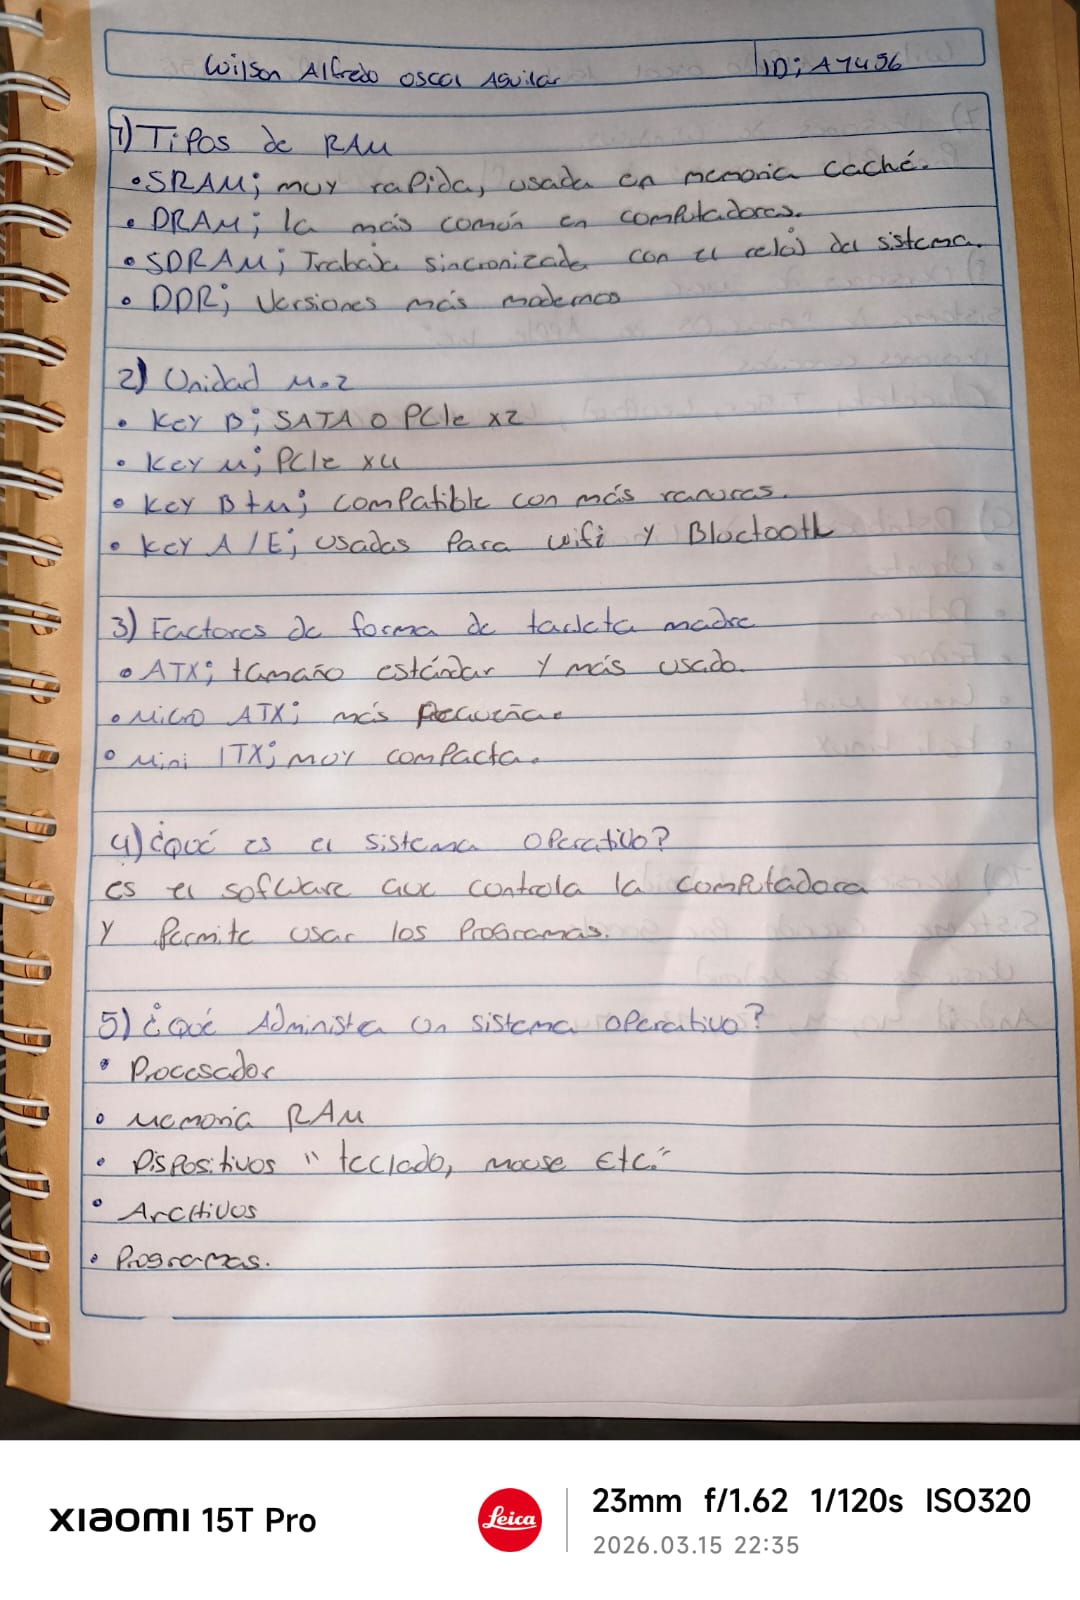 Wilson Alfredo Oscal Aguilar ID; A7456
1) Tipos de RAM
• SRAM; muy rapida, usada en memoria caché.
• DRAM; la más común en computadoras.
• SDRAM; Trabaja sincronizada con el reloj del sistema.
• DDR; Versiones más modernos
2) Unidad M.2
• Key B; SATA o PCIe x2
• Key M; PCIe x4
• Key B+M; compatible con más ranuras.
• Key A/E; usadas Para wifi y Bluetooth
3) Factores de forma de tarjeta madre
• ATX; tamaño estándar y más usado.
• Micro ATX; más pequeña.
• Mini ITX; muy compacta.
4) ¿Qué es el sistema operativo?
es el sofware que controla la computadora
y Permite usar los Programas.
5) ¿Qué Administra un sistema operativo?
• Procesador
• Memoria RAM
• Dispositivos "teclado, mouse Etc."
• Archivos
• Programas.
XIAOMI 15T Pro
Leica
23mm f/1.62 1/120s ISO320
2026.03.15 22:35